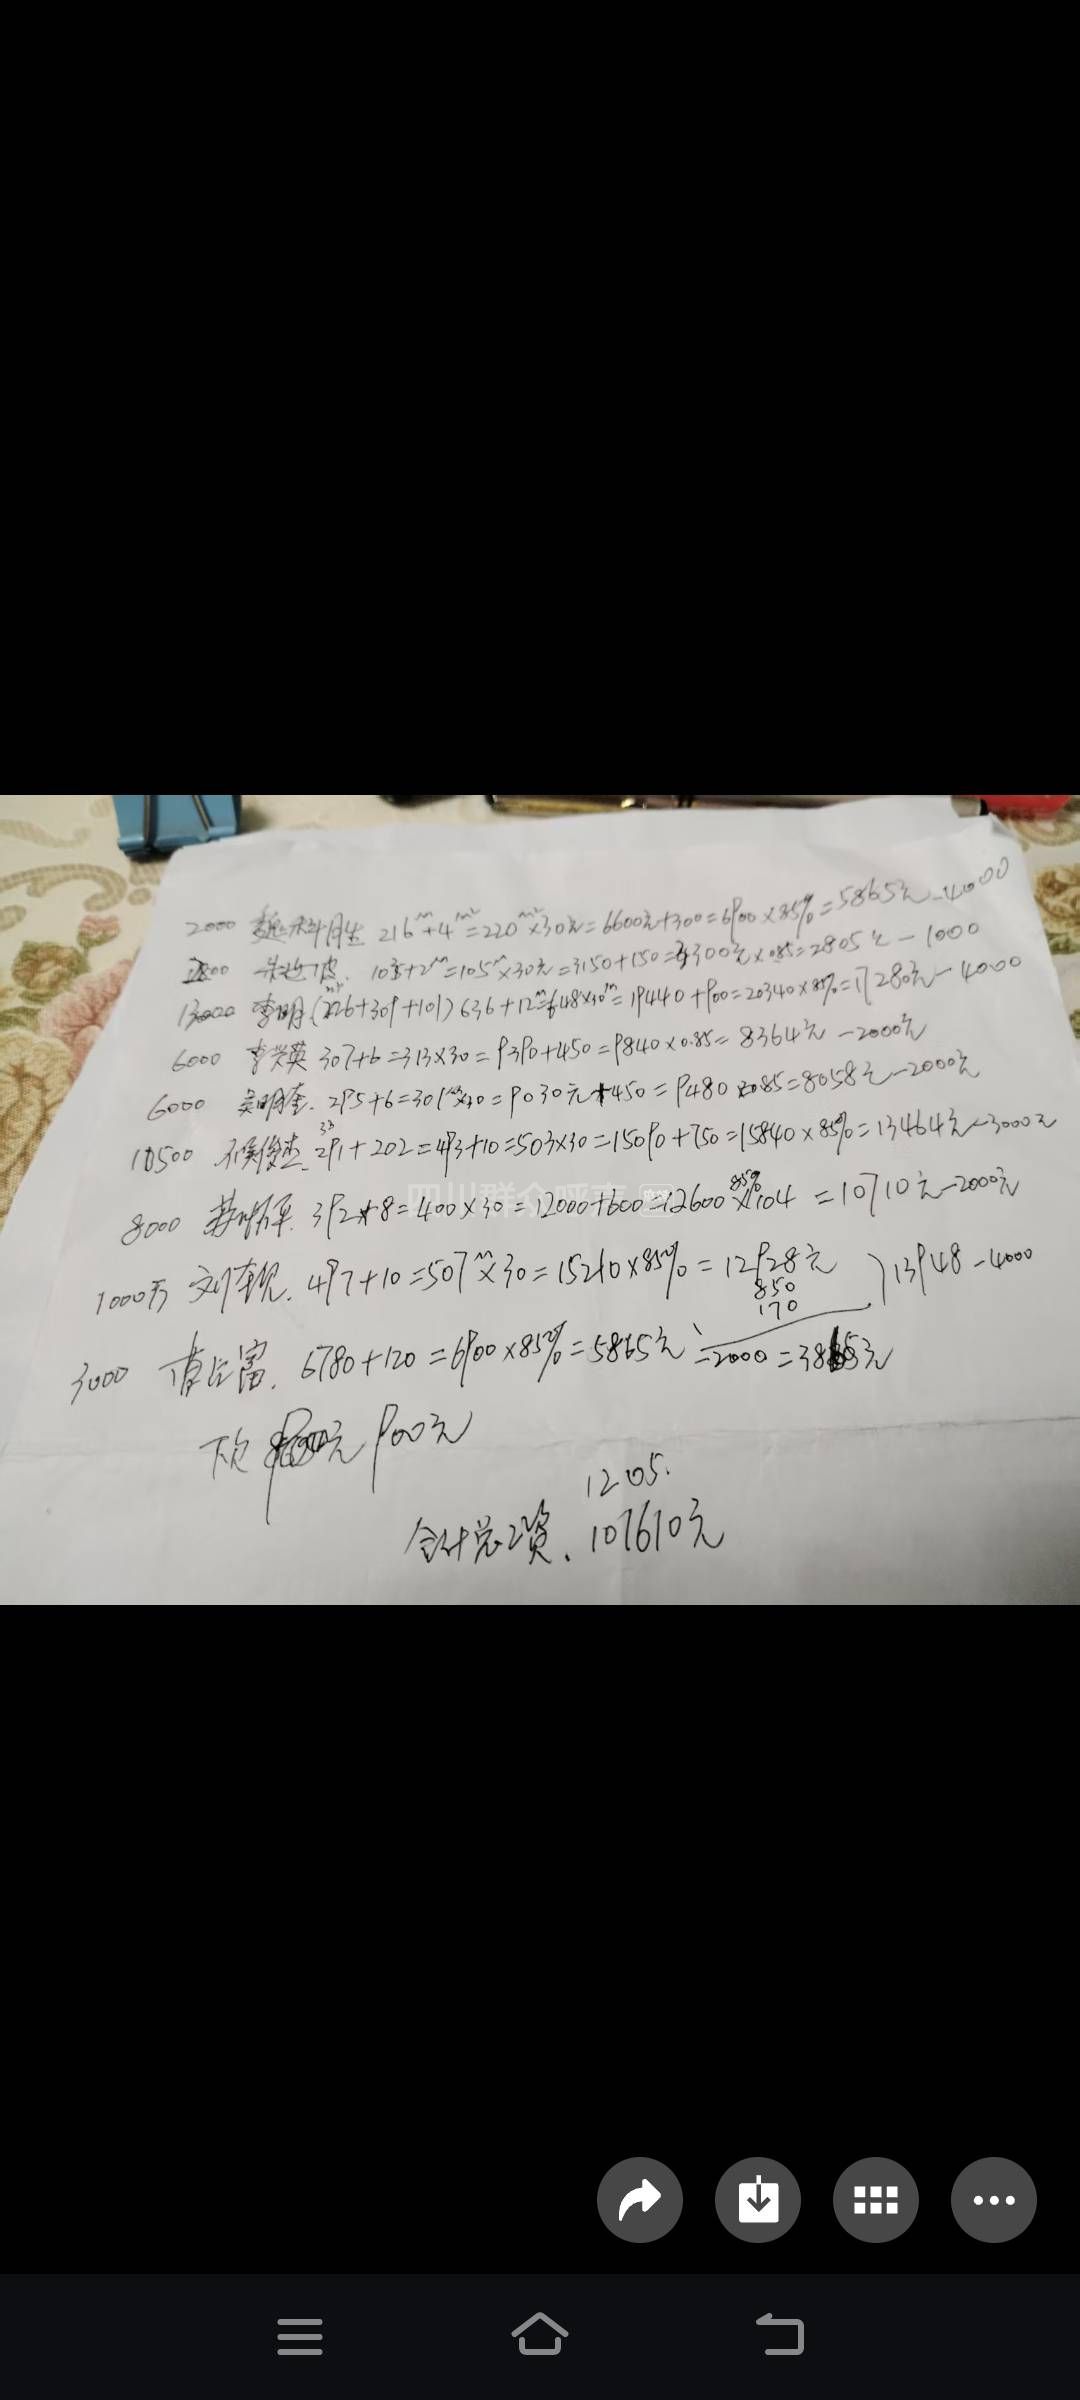 2000 216m+4m²=220m²×30元=6600元+300=6900×85%=5865元-4000
105m×30元=3150+150=3300元×085=2805元-1000
13000 李明(226+309+101)636+12=648×30=19440+900=20340×85%=17280元-4000
6000 李兴英 307+6=313×30=9390+450=9840×0.85=8364元-2000元
6000 吴明奎. 295+6=301×30=9030元+450=9480×085=8058元-2000元
10500 291+202=493+10=503×30=15090+750=15840×85%=13464元-3000元
四川群众呼声
8000 392+8=400×30=12000+600=12600 =10710元-2000元
85%
497+10=507m×30=15210×85%=12928元 13948-4000
850
170
3000 6780+120=6900×85%=5865元-2000=3865元
下欠 900元
1205.
合计总工资. 107610元